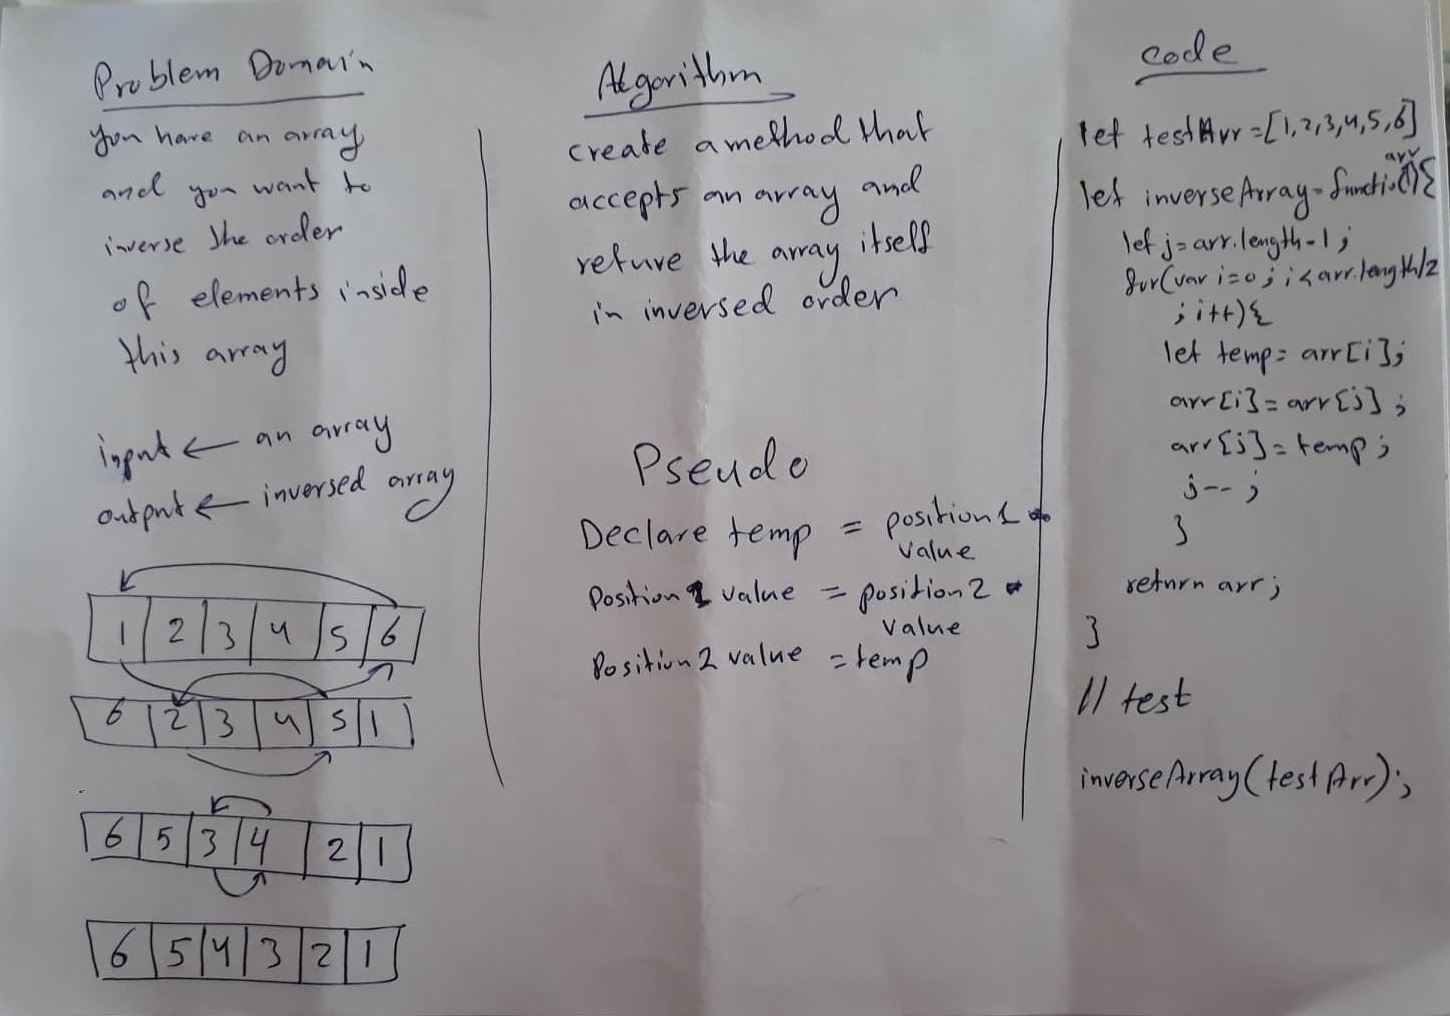 Problem Domain
you have an array
and you want to
inverse the order
of elements inside
this array
input ← an array
output ← inversed array
1 2 3 4 5 6
6 2 3 4 5 1
6 5 3 4 2 1
6 5 4 3 2 1
Algorithm
create a method that
accepts an array and
reture the array itself
in inversed order
Pseudo
Declare temp = position1
value
Position1 value = position2
value
Position2 value = temp
code
let testArr=[1,2,3,4,5,6]
arr
let inverseArray=function(){
let j=arr.length-1;
for(var i=0; i<arr.length/2
; i++){
let temp= arr[i];
arr[i]=arr[j];
arr[j]=temp;
j--;
}
return arr;
}
// test
inverseArray(testArr);